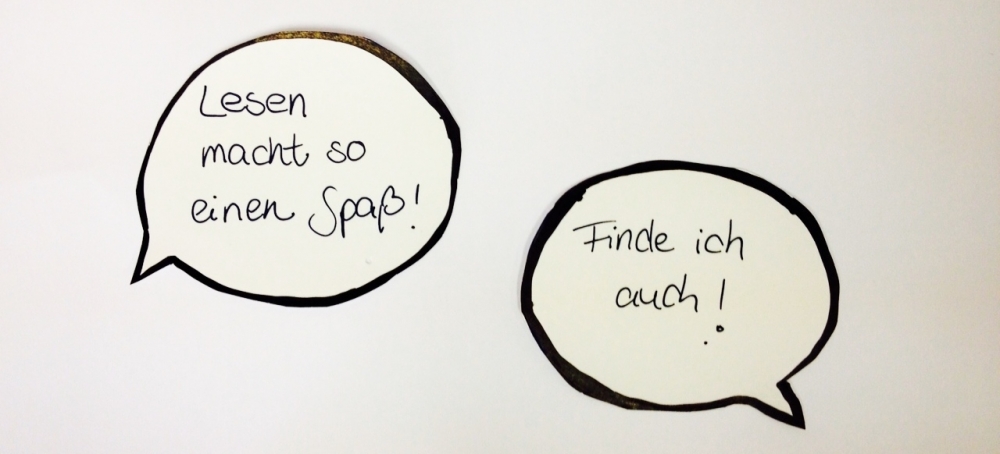 Lesen
macht so
einen Spaß!
Finde ich
auch!